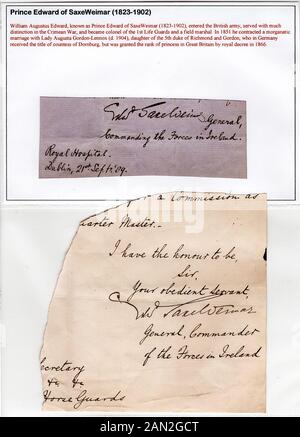 Prince Edward of SaxeWeimar (1823-1902)
William Augustus Edward, known as Prince Edward of SaxeWeimar (1823-1902), entered the British army, served with much
distinction in the Crimean War, and became colonel of the 1st Life Guards and a field marshal. In 1851 he contracted a morganatic
marriage with Lady Augusta Gordon-Lennox (d. 1904), daughter of the 5th duke of Richmond and Gordon, who in Germany
received the title of countess of Dornburg, but was granted the rank of princess in Great Britain by royal decree in 1866.
Edwd SaxeWeimar General,
Commanding the Forces in Ireland.
Royal Hospital.
Dublin, 21st Sept.
for a Commission as
Quarter Master.-
I have the honour to be,
Sir,
Your obedient servant,
Edwd SaxeWeimar
General, Commander
of the Forces in Ireland
ecretary
&c &c
Horse Guards
alamy
Image ID: 2AN2GCT
www.alamy.com